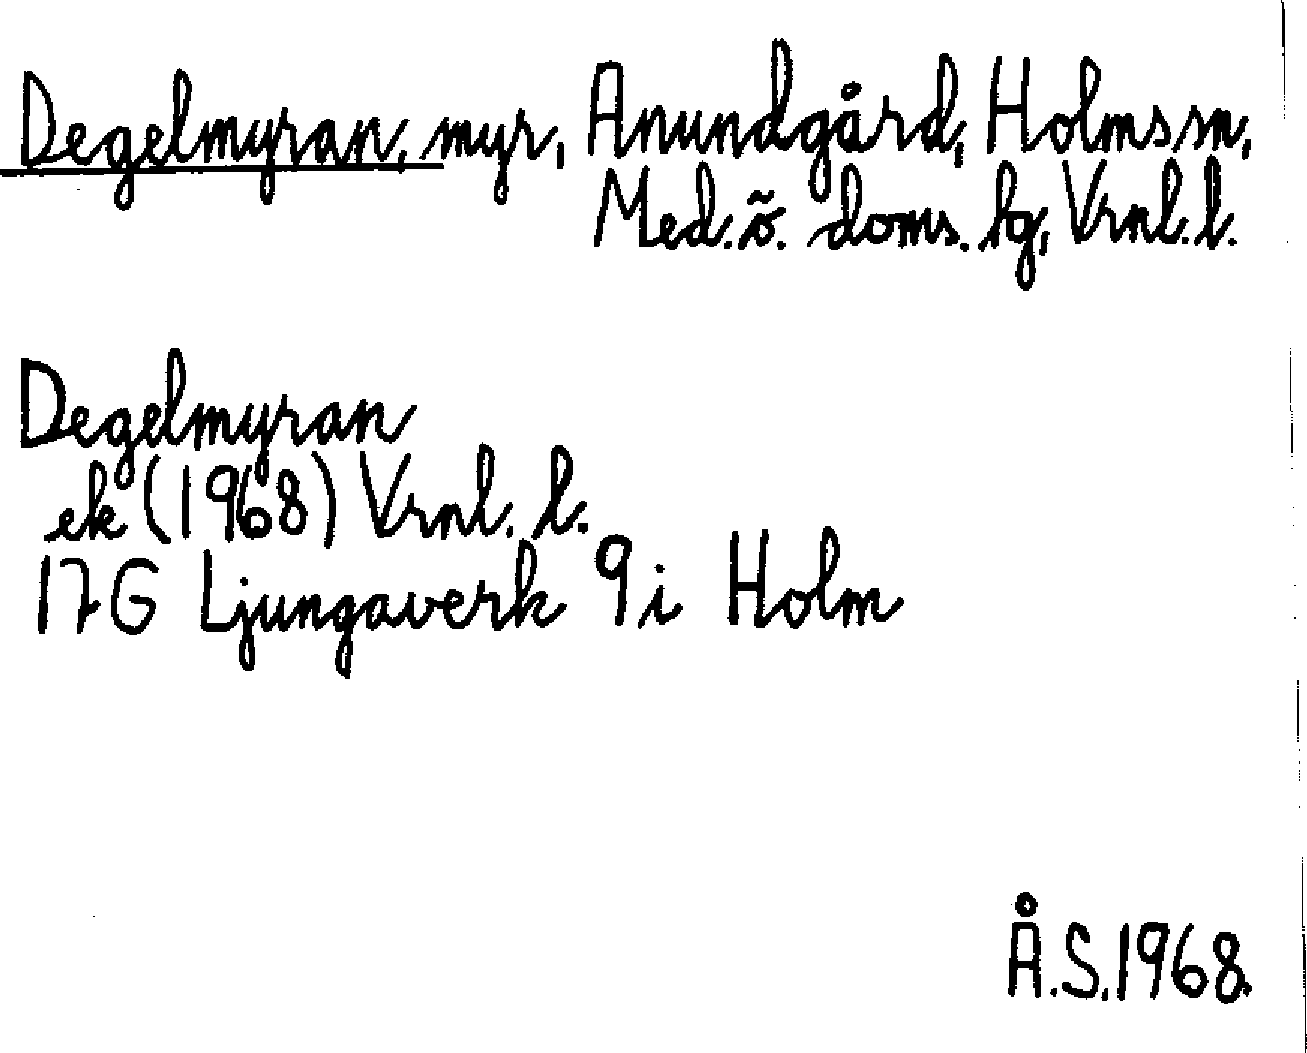 Degelmyran, myr, Anundgård, Holms sn,
Med. õ. doms. lg, Vrnl. l.
Degelmyran
ek (1968) Vrnl. l.
17G Ljungaverk 9 i Holm
Å.S. 1968.